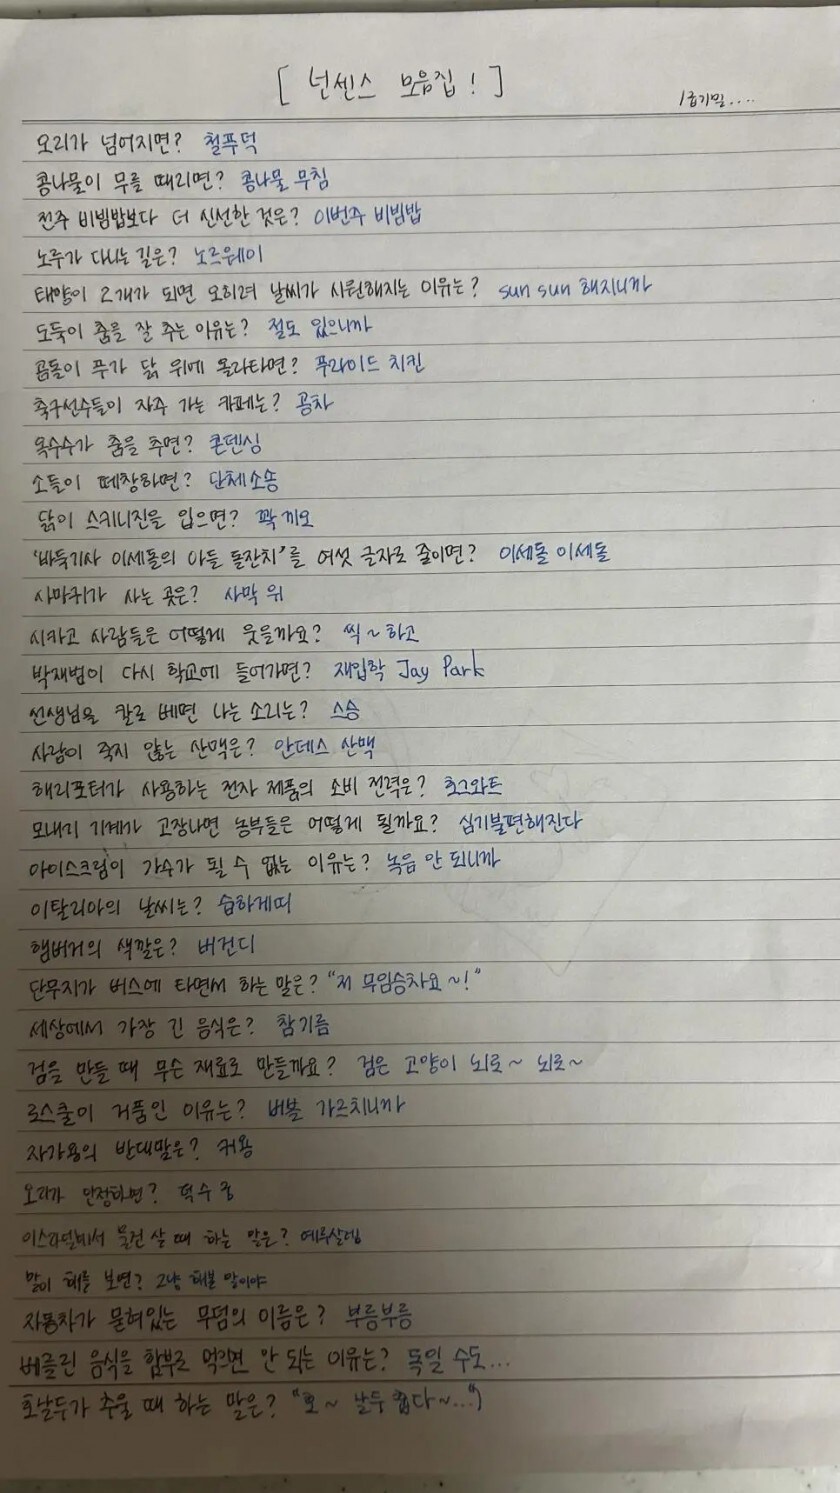 [ 넌센스 모음집! ]
1급기밀....
오리가 넘어지면? 철푸덕
콩나물이 무를 때리면? 콩나물 무침
전주 비빔밥보다 더 신선한 것은? 이번주 비빔밥
노루가 다니는 길은? 노르웨이
태양이 2개가 되면 오히려 날씨가 시원해지는 이유는? sun sun 해지니까
도둑이 춤을 잘 추는 이유는? 절도 있으니까
곰돌이 푸가 닭 위에 올라타면? 푸라이드 치킨
축구선수들이 자주 가는 카페는? 공차
옥수수가 춤을 추면? 콘덴싱
소들이 떼창하면? 단체소송
닭이 스키니진을 입으면? 꽉 끼오
'바둑기사 이세돌의 아들 돌잔치'를 여섯 글자로 줄이면? 이세돌 이세돌
사마귀가 사는 곳은? 사막 위
시카고 사람들은 어떻게 웃을까요? 씩~하고
박재범이 다시 학교에 들어가면? 재입학 Jay Park
선생님을 칼로 베면 나는 소리는? 스승
사람이 죽지 않는 산맥은? 안데스 산맥
해리포터가 사용하는 전자 제품의 소비 전력은? 호그와트
모내기 기계가 고장나면 농부들은 어떻게 될까요? 심기불편해진다
아이스크림이 가수가 될 수 없는 이유는? 녹음 안 되니까
이탈리아의 날씨는? 습하게띠
햄버거의 색깔은? 버건디
단무지가 버스에 타면서 하는 말은? "저 무임승차요~!"
세상에서 가장 긴 음식은? 참기름
검을 만들 때 무슨 재료로 만들까요? 검은 고양이 뇌로~ 뇌로~
로스쿨이 거품인 이유는? 버블 가르치니까
자가용의 반대말은? 커용
오리가 안정타면? 덕수궁
이스라엘에서 물건 살 때 하는 말은? 예루살렘
말이 해를 보면? 그냥 해본 말이야
자동차가 묻혀있는 무덤의 이름은? 부릉부릉
베를린 음식을 함부로 먹으면 안 되는 이유는? 독일 수도...
호날두가 추울 때 하는 말은? "호~ 날두 춥다~..."